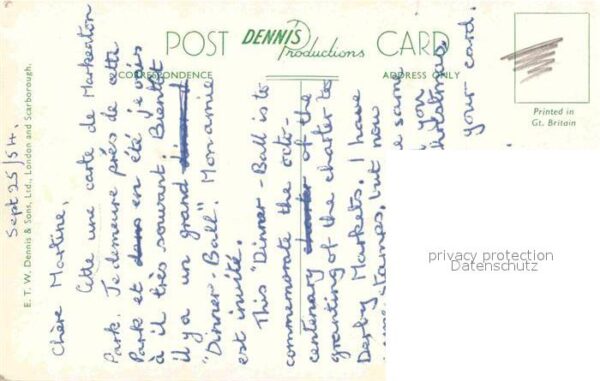 POST DENNIS Productions CARD
CORRESPONDENCE ADDRESS ONLY
Printed in
Gt. Britain
E. T. W. Dennis & Sons, Ltd., London and Scarborough.
Sept 25/54.
Chère Martine,
Cette une carte de Markeaton
Park. Je demeure près de cette
Park et dans en été je vais
à il très souvant. Bientôt
il y a un grand
"Dinner-Ball". Mon amie
est invité.
This "Dinner-Ball is to
commemorate the octo-
centenary charter of the
granting of the charter to
Derby Markets. I have
some stamps, but now
e same
you
hristmas
your card.
privacy protection
Datenschutz